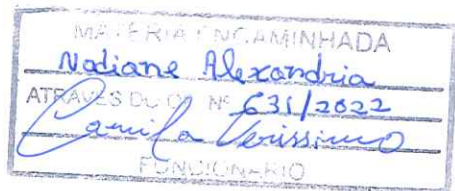 MATÉRIA ENCAMINHADA
Nadiane Alexandria
ATRAVÉS DO OF. Nº 631/2022
Camila Verissimo
FUNCIONÁRIO